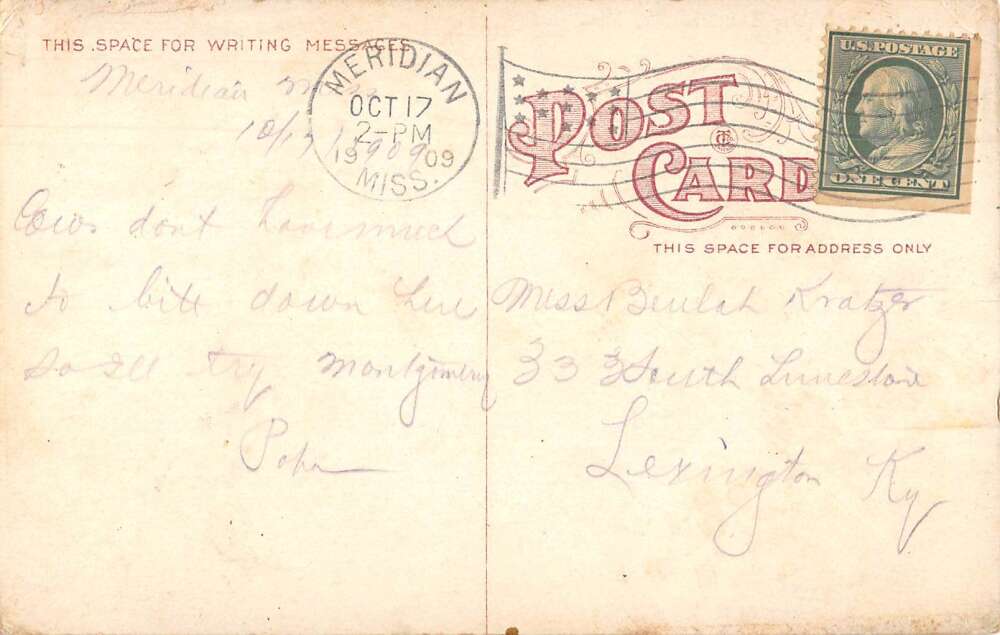 THIS SPACE FOR WRITING MESSAGES
Meridian Miss
10/17/1909
MERIDIAN
OCT 17
2-PM
1909
MISS.
dont have much
to bite down here
So Ill try Montgomery
Papa
POST
CARD
U.S. POSTAGE
ONE CENT
THIS SPACE FOR ADDRESS ONLY
Miss Beulah Kratzer
333 South Limestone
Lexington Ky